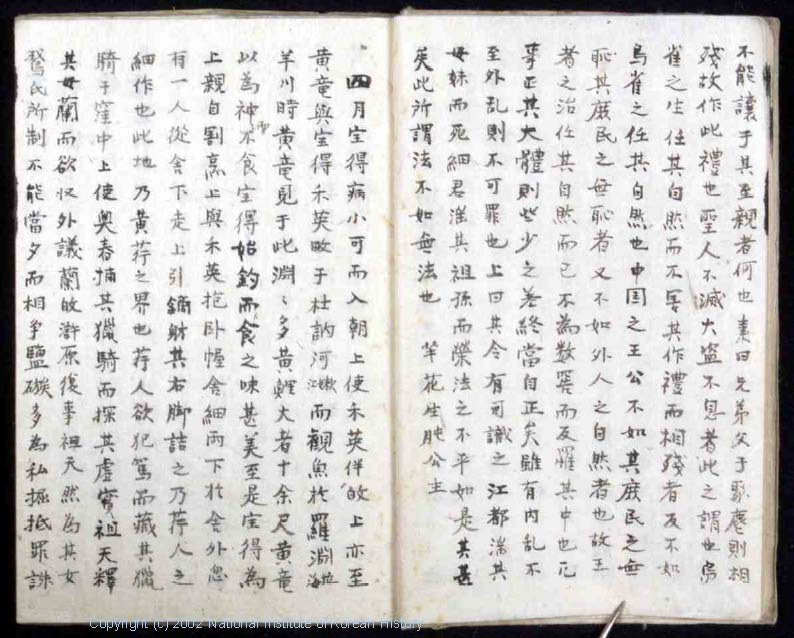 不能讓于其至親者何也素曰兄弟父子聚麀則相
殘故作此禮也聖人不滅大盜不息者此之謂也鳥
雀之生任其自然而不害其作禮而相殘者反不如
鳥雀之任其自然也中国之王公不如其庶民之無
恥其庶民之無恥者又不如外人之自然者也故王
者之治任其自然而已不為数罟而反罹其中也凡
事正其大體則些少之差終當自正矣雖有内乱不
至外乱則不可罪也上曰其令有司識之江都滛其
母妹而死細君滛其祖孫而榮法之不平如是其甚
矣此所謂法不如無法也 芉花生肫公主
四月宝得病小可而入朝上使禾英伴 上亦至
黄竜與宝得禾英畋于杜訥河 而觀魚於羅淵
芉川時黄竜見于此淵〻多黄鯉大者十余尺黄竜
以為神而不食宝得始釣而食之味甚美至是宝得為
上親自割烹上與禾英抱卧幄舍細雨下於舍外忽
有一人從舍下走上引鏑射其右脚詰之乃荇人之
細作也此地乃黄荇之界也荇人欲犯駕而藏其獵
騎于窪中上使奥春捕其獵騎而探其虚實祖天釋
其母蘭而欲收外議蘭 原後事祖天然為其女
鴛氏所制不能當夕而相爭鹽 多為私掘抵罪誅
Copyright (c) 2002 National Institute of Korean History